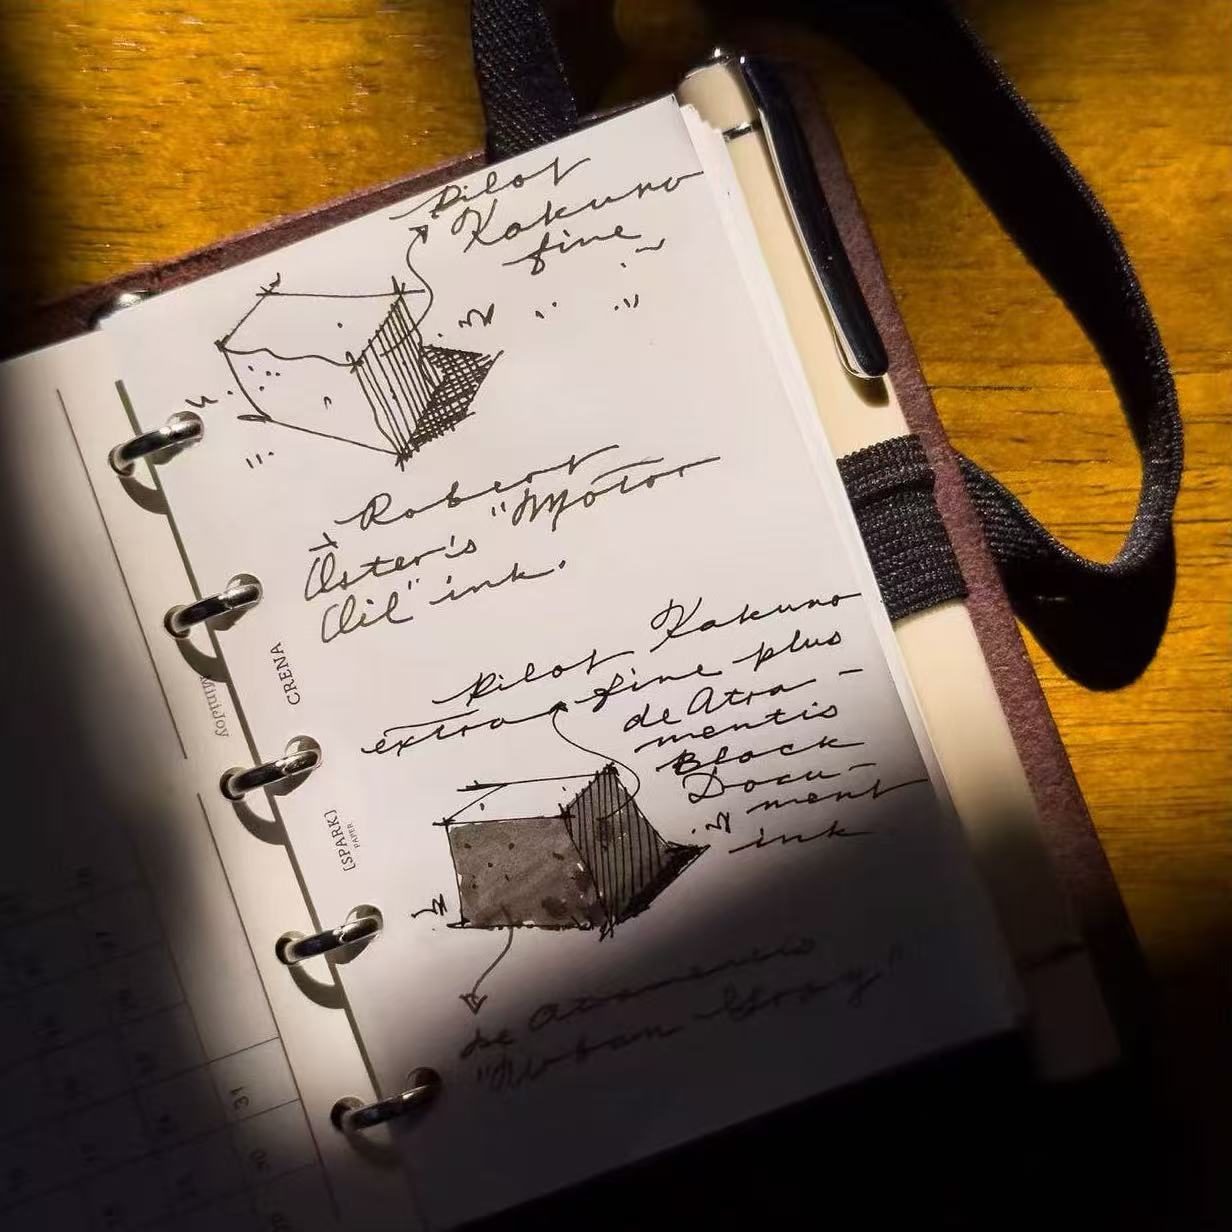 Pilot
Kakuno
fine
Robert
Oster's "Motor
Oil" ink.
Pilot Kakuno
extra fine plus
de Atra-
mentis
Black
Docu-
ment
ink
de Atramentis
"Urban Gray"
CRENA
[SPARK]
PAPER
31
30